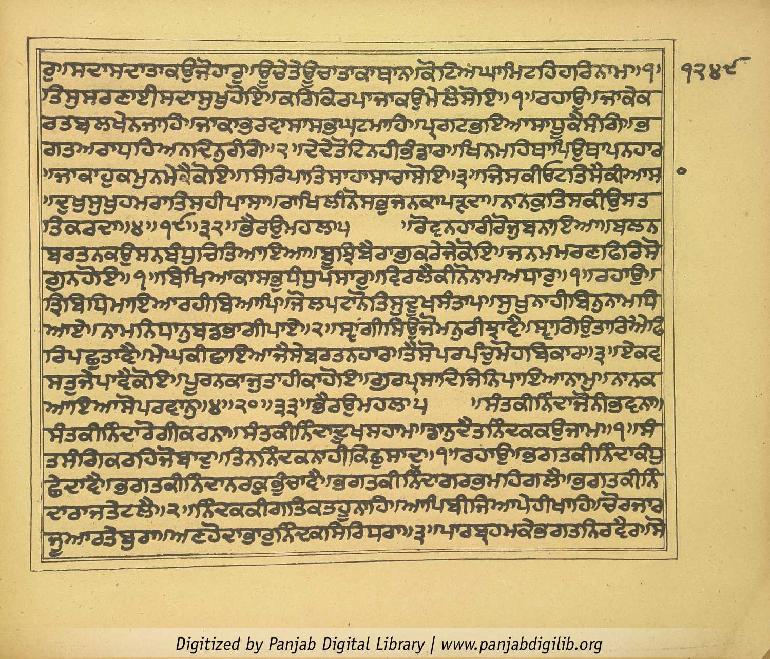 ਰੁ॥ਸਦਾਸਦਾਤਾਕਉਜੋਹਾਰੁ॥ਊਚੇਤੇਊਚਾਤਾਕਾਥਾਨਾ॥ਕੋਟਿਅਘਾਮਿਟਹਿਹਰਿਨਾਮਾ॥੧॥
੧੨੪੯
ਤਿਸੁਸਰਣਾਈਸਦਾਸੁਖੁਹੋਇ॥ਕਰਿਕਿਰਪਾਜਾਕਉਮੇਲੈਸੋਇ॥੧॥ਰਹਾਉ॥ਜਾਕੇਕ
ਰਤਬਲਖੇਨਜਾਹਿ॥ਜਾਕਾਭਰਵਾਸਾਸਭਘਟਮਾਹਿ॥ਪ੍ਰਗਟਭਇਆਸਾਧੂਕੈਸੰਗਿ॥ਭ
ਗਤਅਰਾਧਹਿਅਨਦਿਨੁਰੰਗਿ॥੨॥ਦੇਦੇਤੋਟਿਨਹੀਭੰਡਾਰ॥ਖਿਨਮਹਿਥਾਪਿਉਥਾਪਨਹਾਰ
॥ਜਾਕਾਹੁਕਮੁਨਮੇਟੈਕੋਇ॥ਸਿਰਿਪਾਤਿਸਾਹਾਸਾਚਾਸੋਇ॥੩॥ਜਿਸਕੀਓਟਤਿਸੈਕੀਆਸ
॥ਦੁਖੁਸੁਖੁਹਮਰਾਤਿਸਹੀਪਾਸ॥ਰਾਖਿਲੀਨੋਸਭੁਜਨਕਾਪੜਦਾ॥ਨਾਨਕੁਤਿਸਕੀਉਸਤ
ਤਿਕਰਦਾ॥੪॥੧੯॥੩੨॥ਭੈਰਉਮਹਲਾ੫ ॥ਰੋਵਨਹਾਰੀਰੋਜੁਬਨਾਇਆ॥ਬਲਨ
ਬਰਤਨਕਉਸਨਬੰਧੁਚਿਤਿਆਇਆ॥ਬੂਝਿਬੈਰਾਗੁਕਰੇਜੇਕੋਇ॥ਜਨਮਮਰਣਫਿਰਿਸੋ
ਗੁਨਹੋਇ॥੧॥ਬਿਖਿਆਕਾਸਭੁਧੰਧੁਪਸਾਰੁ॥ਵਿਰਲੈਕੀਨੋਨਾਮਅਧਾਰੁ॥੧॥ਰਹਾਉ॥
ਤ੍ਰਿਬਿਧਿਮਾਇਆਰਹੀਬਿਆਪਿ॥ਜੋਲਪਟਾਨੋਤਿਸੁਦੂਖਸੰਤਾਪ॥ਸੁਖੁਨਾਹੀਬਿਨੁਨਾਮਧਿ
ਆਏ॥ਨਾਮਨਿਧਾਨੁਬਡਭਾਗੀਪਾਏ॥੨॥ਸ੍ਵਾਂਗੀਸਿਉਜੋਮਨੁਰੀਝਾਵੈ॥ਸ੍ਵਾਗਿਉਤਾਰਿਐਫਿ
ਰਿਪਛੁਤਾਵੈ॥ਮੇਘਕੀਛਾਇਆਜੈਸੇਬਰਤਨਹਾਰ॥ਤੈਸੋਪਰਪੰਚੁਮੋਹਬਿਕਾਰ॥੩॥ਏਕਵ
ਸਤੁਜੇਪਾਵੈਕੋਇ॥ਪੂਰਨਕਾਜੁਤਾਹੀਕਾਹੋਇ॥ਗੁਰਪ੍ਰਸਾਦਿਜਿਨਿਪਾਇਆਨਾਮੁ॥ਨਾਨਕ
ਆਇਆਸੋਪਰਵਾਨੁ॥੪॥੨੦॥੩੩॥ਭੈਰਉਮਹਲਾ੫ ॥ਸੰਤਕੀਨਿੰਦਾਜੋਨੀਭਵਨਾ॥
ਸੰਤਕੀਨਿੰਦਾਰੋਗੀਕਰਨਾ॥ਸੰਤਕੀਨਿੰਦਾਦੂਖਸਹਾਮ॥ਡਾਨੁਦੈਤਨਿੰਦਕਕਉਜਾਮ॥੧॥ਸੰ
ਤਸੰਗਿਕਰਹਿਜੋਬਾਦੁ॥ਤਿਨਨਿੰਦਕਨਾਹੀਕਿਛੁਸਾਦੁ॥੧॥ਰਹਾਉ॥ਭਗਤਕੀਨਿੰਦਾਕੰਧੁ
ਛੇਦਾਵੈ॥ਭਗਤਕੀਨਿੰਦਾਨਰਕੁਭੁੰਚਾਵੈ॥ਭਗਤਕੀਨਿੰਦਾਗਰਭਮਹਿਗਲੈ॥ਭਗਤਕੀਨਿੰ
ਦਾਰਾਜਤੇਟਲੈ॥੨॥ਨਿੰਦਕਕੀਗਤਿਕਤਹੂਨਾਹਿ॥ਆਪਿਬੀਜਿਆਪੇਹੀਖਾਹਿ॥ਚੋਰਜਾਰ
ਜੂਆਰਤੇਬੁਰਾ॥ਅਣਹੋਦਾਭਾਰੁਨਿੰਦਕਿਸਿਰਿਧਰਾ॥੩॥ਪਾਰਬ੍ਰਹਮਕੇਭਗਤਨਿਰਵੈਰ॥ਸੋ
Digitized by Panjab Digital Library | www.panjabdigilib.org